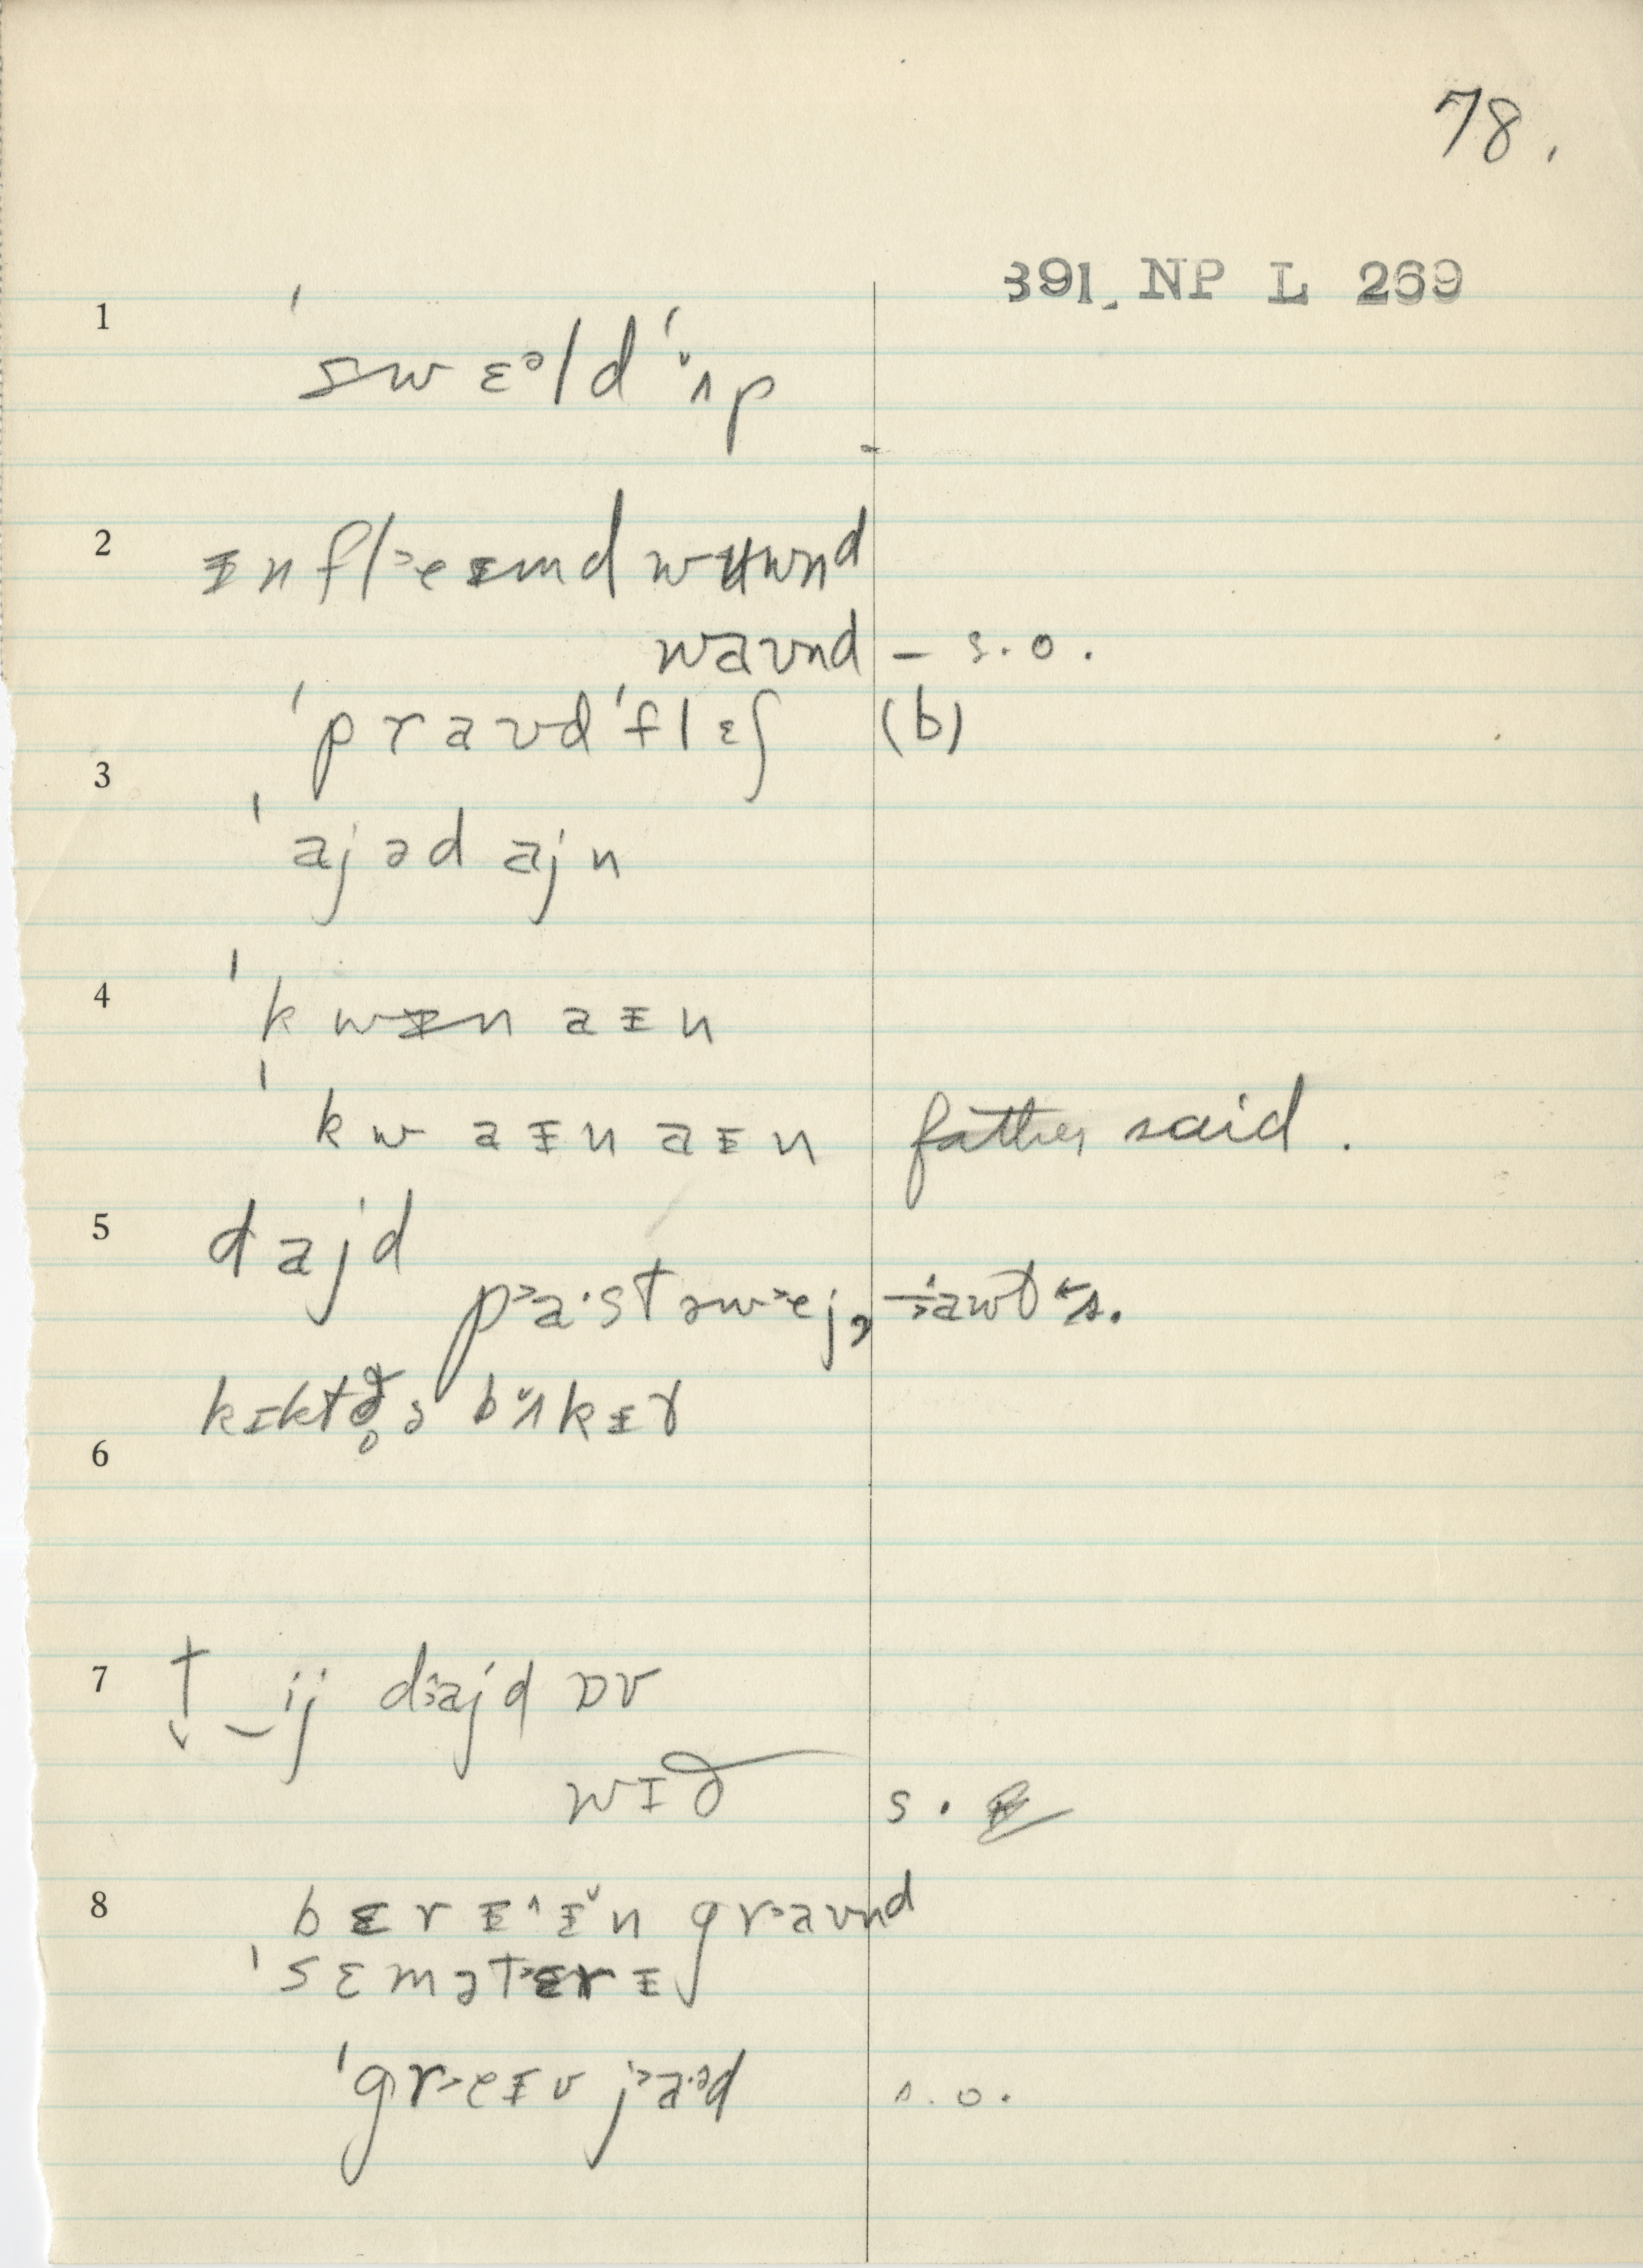 78.
391. NP L 269
1
ˈswɛᵊldˈʌ̌p
2
ᵻnfl˃eᵻmd wʉwnd
waʊnd – s.o.
ˈpraʊdˈflɛʃ (b)
3
ˈajədajn
4
ˈkwᵻnaᵻn
ˈkwaᵻnaᵻn father said.
5
dajd
p˃a·stəw˃ej,
6
bʌ̌kᵻr
7
ij d˃ajd ɒv
wɪð s.
8
bɛrᵻ^ᵻ̌n gr˃aʊnd
ˈsɛmət˃ɛrᵻ
ˈgr˃eᵻv j˃a·ᵊd s.o.